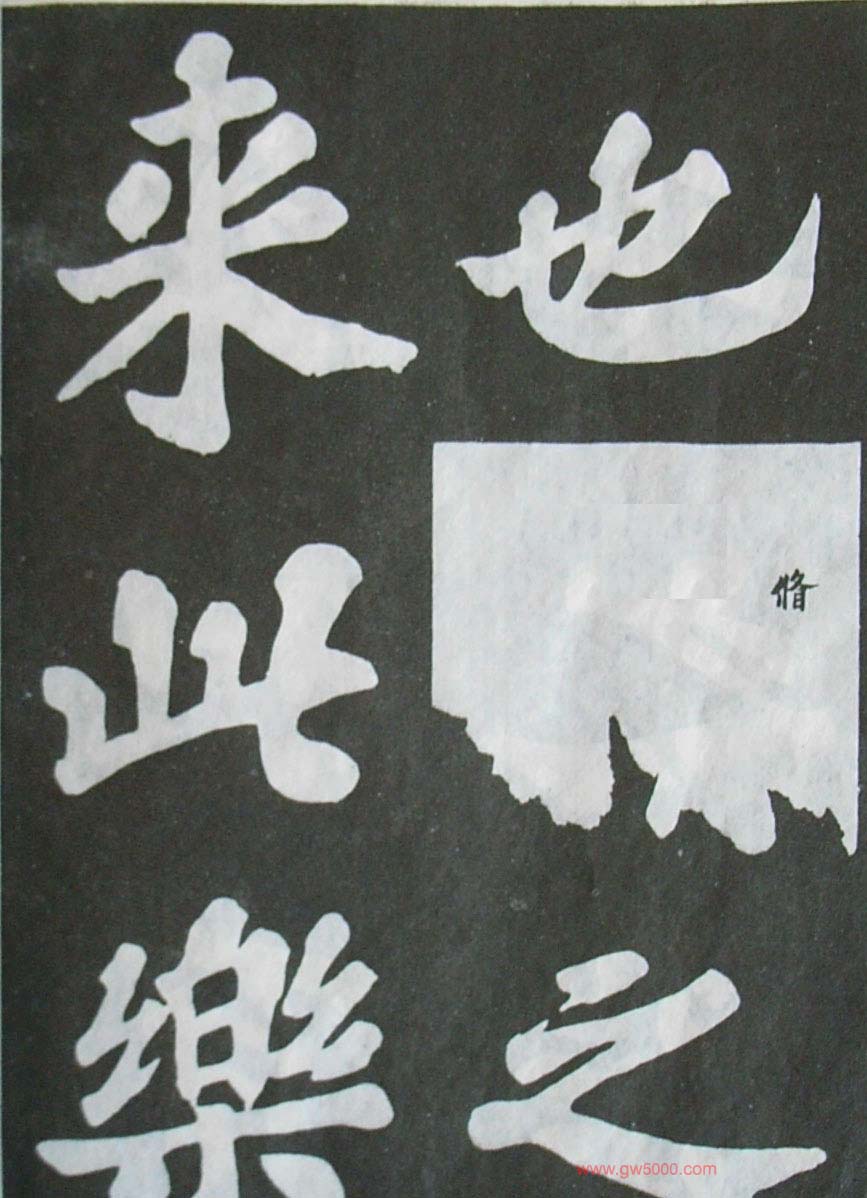 也脩之
来此樂
www.gw5000.com